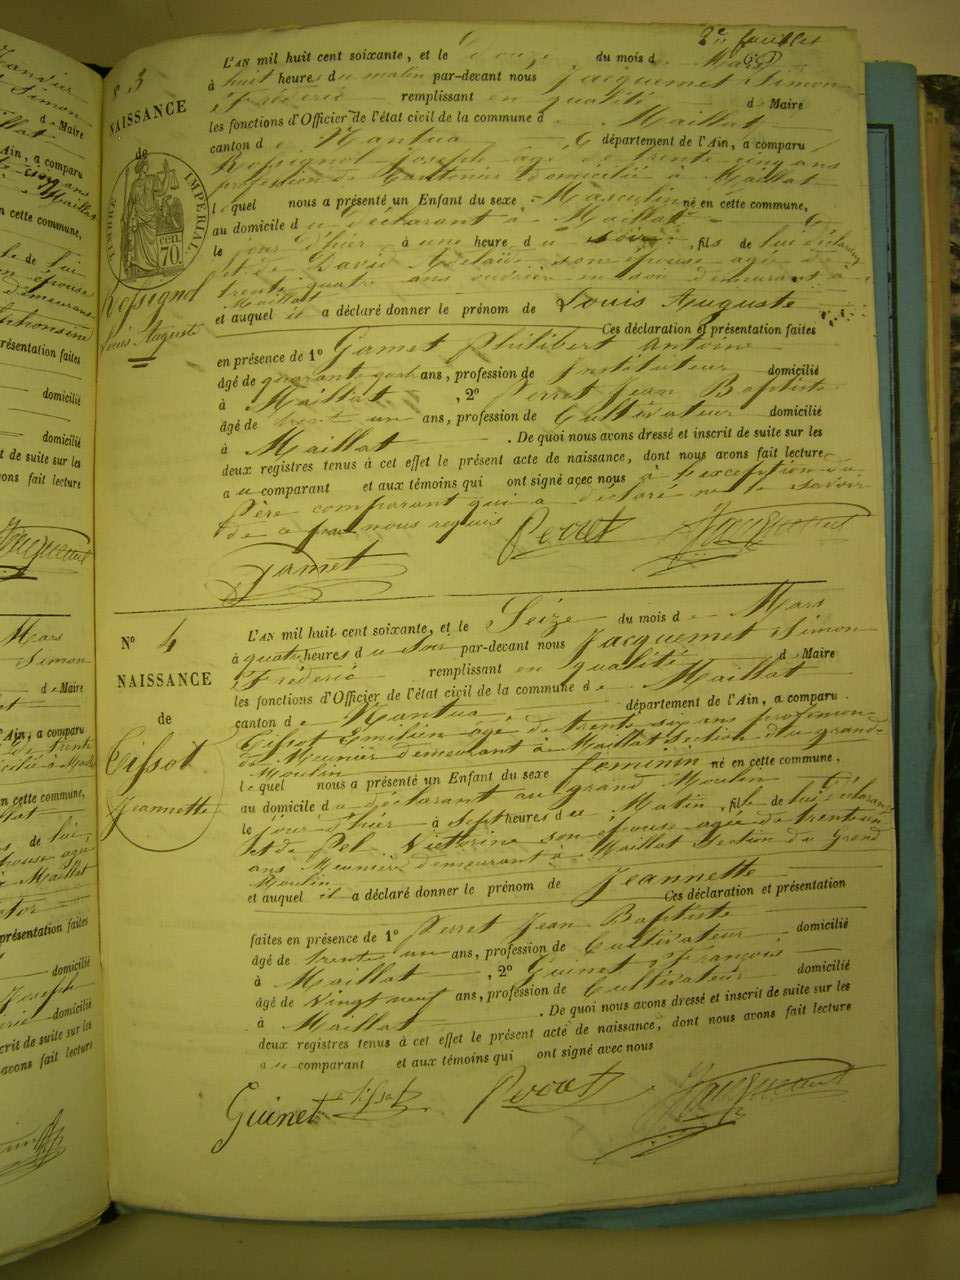 2e feuillet
N° 3
NAISSANCE
de
TIMBRE IMPÉRIAL
CEN. 70.
Rossignol
Louis Auguste
L'AN mil huit cent soixante, et le douze du mois de Mars
à huit heures du matin par-devant nous Jacquemet Simon
Frédéric remplissant en qualité de Maire
les fonctions d'Officier de l'état civil de la commune de Maillat
canton de Nantua département de l'Ain, a comparu
Rossignol Joseph âgé de trente cinq ans
profession de Cantonier domicilié à Maillat
lequel nous a présenté un Enfant du sexe Masculin né en cette commune,
au domicile du déclarant à Maillat
le jour d'hier à une heure du soir, fils de lui déclarant
et de David son épouse agée de
trente quatre ans demeurant à
Maillat
et auquel il a déclaré donner le prénom de Louis Auguste
Ces déclaration et présentation faites
en présence de 1° Gamet Philibert Antoine
âgé de quarante quatre ans, profession de Instituteur domicilié
à Maillat, 2° Perret Jean Baptiste
âgé de trente un ans, profession de Cultivateur domicilié
à Maillat. De quoi nous avons dressé et inscrit de suite sur les
deux registres tenus à cet effet le présent acte de naissance, dont nous avons fait lecture
au comparant et aux témoins qui ont signé avec nous à l'exception du
Père comparant qui a déclaré ne le savoir
de ce par nous requis
Perret Jacquemet
Gamet
N° 4
NAISSANCE
de
Tissot
Jeannette
L'AN mil huit cent soixante, et le Seize du mois de Mars
à quatre heures du soir par-devant nous Jacquemet Simon
Frédéric remplissant en qualité de Maire
les fonctions d'Officier de l'état civil de la commune de Maillat
canton de Nantua département de l'Ain, a comparu
Tissot Emilien âgé de trente six ans profession
de Meunier demeurant à Maillat section du grand
Moulin
lequel nous a présenté un Enfant du sexe feminin né en cette commune,
au domicile du déclarant au grand Moulin
le jour d'hier à sept heures du Matin, fille de lui déclarant
et de Victorine son épouse agée de trente un
ans Meunière demeurant à Maillat Section du Grand
Moulin
et auquel il a déclaré donner le prénom de Jeannette
Ces déclaration et présentation
faites en présence de 1° Perret Jean Baptiste
âgé de trente un ans, profession de Cultivateur domicilié
à Maillat, 2° Guinet François
âgé de vingt neuf ans, profession de Cultivateur domicilié
à Maillat. De quoi nous avons dressé et inscrit de suite sur les
deux registres tenus à cet effet le présent acte de naissance, dont nous avons fait lecture
au comparant et aux témoins qui ont signé avec nous
Guinet e Tissot Perret Jacquemet